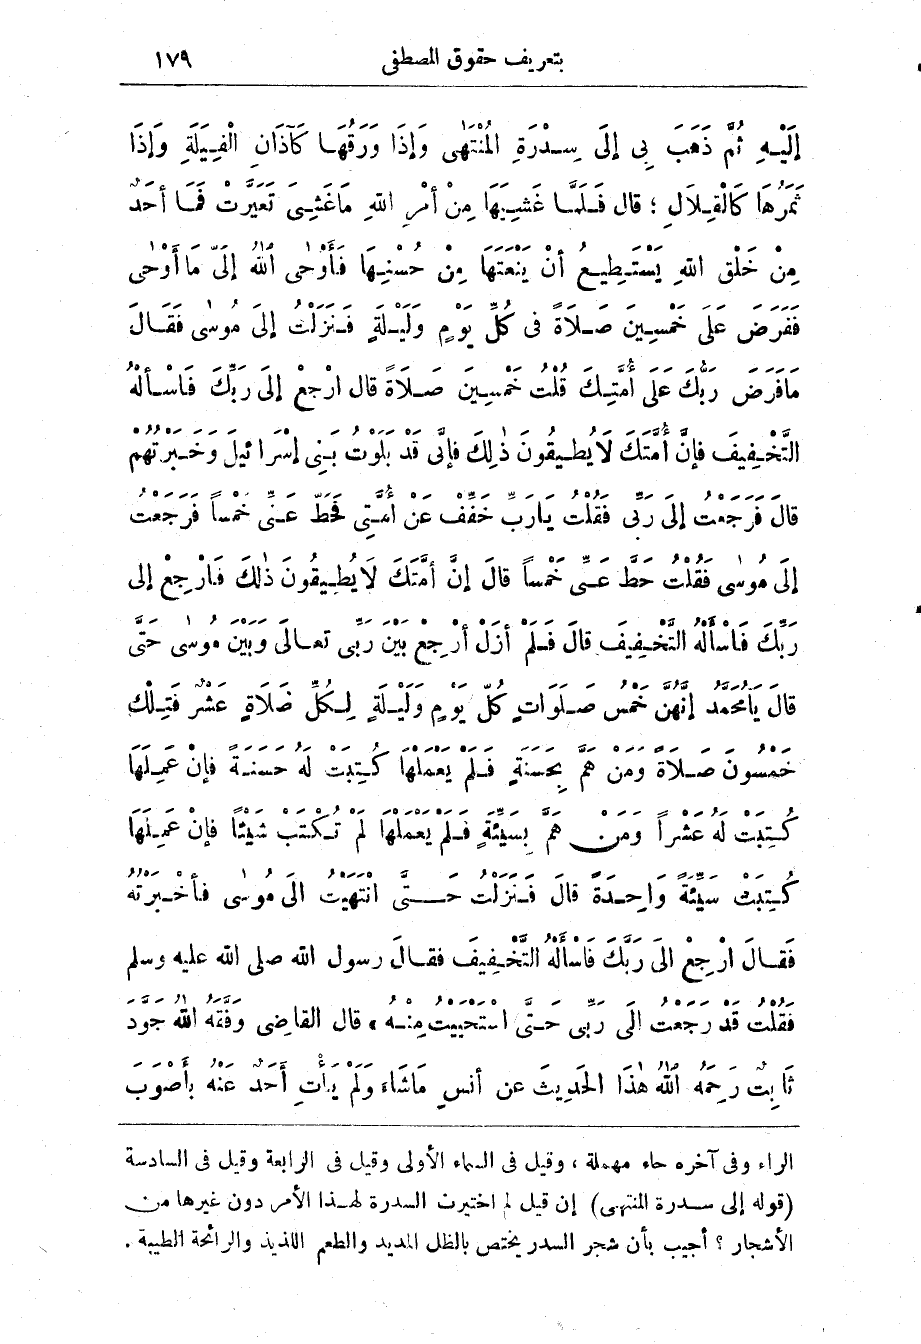 بتعريف حقوق المصطفى ١٧٩
إِلَيْهِ ثُمَّ ذَهَبَ بِى إِلَى سِدْرَةِ الْمُنْتَهٰى وَإِذَا وَرَقُهَا كَآذَانِ الْفِيَلَةِ وَإِذَا
ثَمَرُهَا كَالْقِلَالِ ؛ قال فَلَمَّا غَشِيَهَا مِنْ أَمْرِ اللهِ مَاغَشِىَ تَغَيَّرَتْ فَمَا أَحَدٌ
مِنْ خَلْقِ اللهِ يَسْتَطِيعُ أَنْ يَنْعَتَهَا مِنْ حُسْنِهَا فَأَوْحٰى اللهُ إِلَىَّ مَا أَوْحٰى
فَفَرَضَ عَلَىَّ خَمْسِينَ صَلَاةً فى كُلِّ يَوْمٍ وَلَيْلَةٍ فَنَزَلْتُ إِلَى مُوسٰى فَقَالَ
مَافَرَضَ رَبُّكَ عَلَى أُمَّتِكَ قُلْتُ خَمْسِينَ صَلَاةً قال ارْجِعْ إِلَى رَبِّكَ فَاسْأَلْهُ
التَّخْفِيفَ فإِنَّ أُمَّتَكَ لَايُطِيقُونَ ذٰلِكَ فإِنِّى قَدْ بَلَوْتُ بَنِى إِسْرَائِيلَ وَخَبَرْتُهُمْ
قال فَرَجَعْتُ إلى رَبِّى فَقُلْتُ يارَبِّ خَفِّفْ عن أُمَّتِى فَحَطَّ عَنِّى خَمْساً فَرَجَعْتُ
إِلَى مُوسٰى فَقُلْتُ حَطَّ عَنِّى خَمْساً قالَ إِنَّ أُمَّتَكَ لَا يُطِيقُونَ ذٰلِكَ فَارْجِعْ إلى
رَبِّكَ فَاسْأَلْهُ التَّخْفِيفَ قالَ فَلَمْ أَزَلْ أَرْجِعُ بَيْنَ رَبِّى تعالَى وَبَيْنَ مُوسٰى حَتَّى
قالَ يَامُحَمَّد إِنَّهُنَّ خَمْسُ صَلَوَاتٍ كُلَّ يَوْمٍ وَلَيْلَةٍ لِكُلِّ صَلَاةٍ عَشْرٌ فَتِلْكَ
خَمْسُونَ صَلَاةً وَمَنْ هَمَّ بِحَسَنَةٍ فَلَمْ يَعْمَلْهَا كُتِبَتْ لَهُ حَسَنَةً فإِنْ عَمِلَهَا
كُتِبَتْ لَهُ عَشْراً وَمَنْ هَمَّ بِسَيِّئَةٍ فَلَمْ يَعْمَلْهَا لَمْ تُكْتَبْ شَيْئًا فإِنْ عَمِلَهَا
كُتِبَتْ سَيِّئَةً وَاحِدَةً قالَ فَنَزَلْتُ حَتَّى انْتَهَيْتُ الى مُوسٰى فأَخْبَرْتُهُ
فَقَالَ ارْجِعْ الىَ رَبَّكَ فَاسْأَلْهُ التَّخْفِيفَ فقالَ رسول الله صلى الله عليه وسلم
فَقُلْتُ قَدْ رَجَعْتُ الى رَبِّى حَتَّى اسْتَحْيَيْتُ مِنْهُ » قال القاضى وَفَّقَهُ اللهُ جَوَّدَ
ثَابِتٌ رَحِمَهُ اللهُ هٰذَا الحَدِيثَ عن أَنَسٍ مَاشَاءَ وَلَمْ يَأْتِ أَحَدٌ عَنْهُ بِأَصْوَبَ
الراء وفى آخره حاء مهملة ، وقيل فى السماء الأولى وقيل فى الرابعة وقيل فى السادسة
(قوله إلى سدرة المنتهى) إن قيل لم اختيرت السدرة لهذا الأمر دون غيرها من
الأشجار ؟ أجيب بأن شجر السدر يختص بالظل المديد والطعم اللذيذ والرائحة الطيبة .